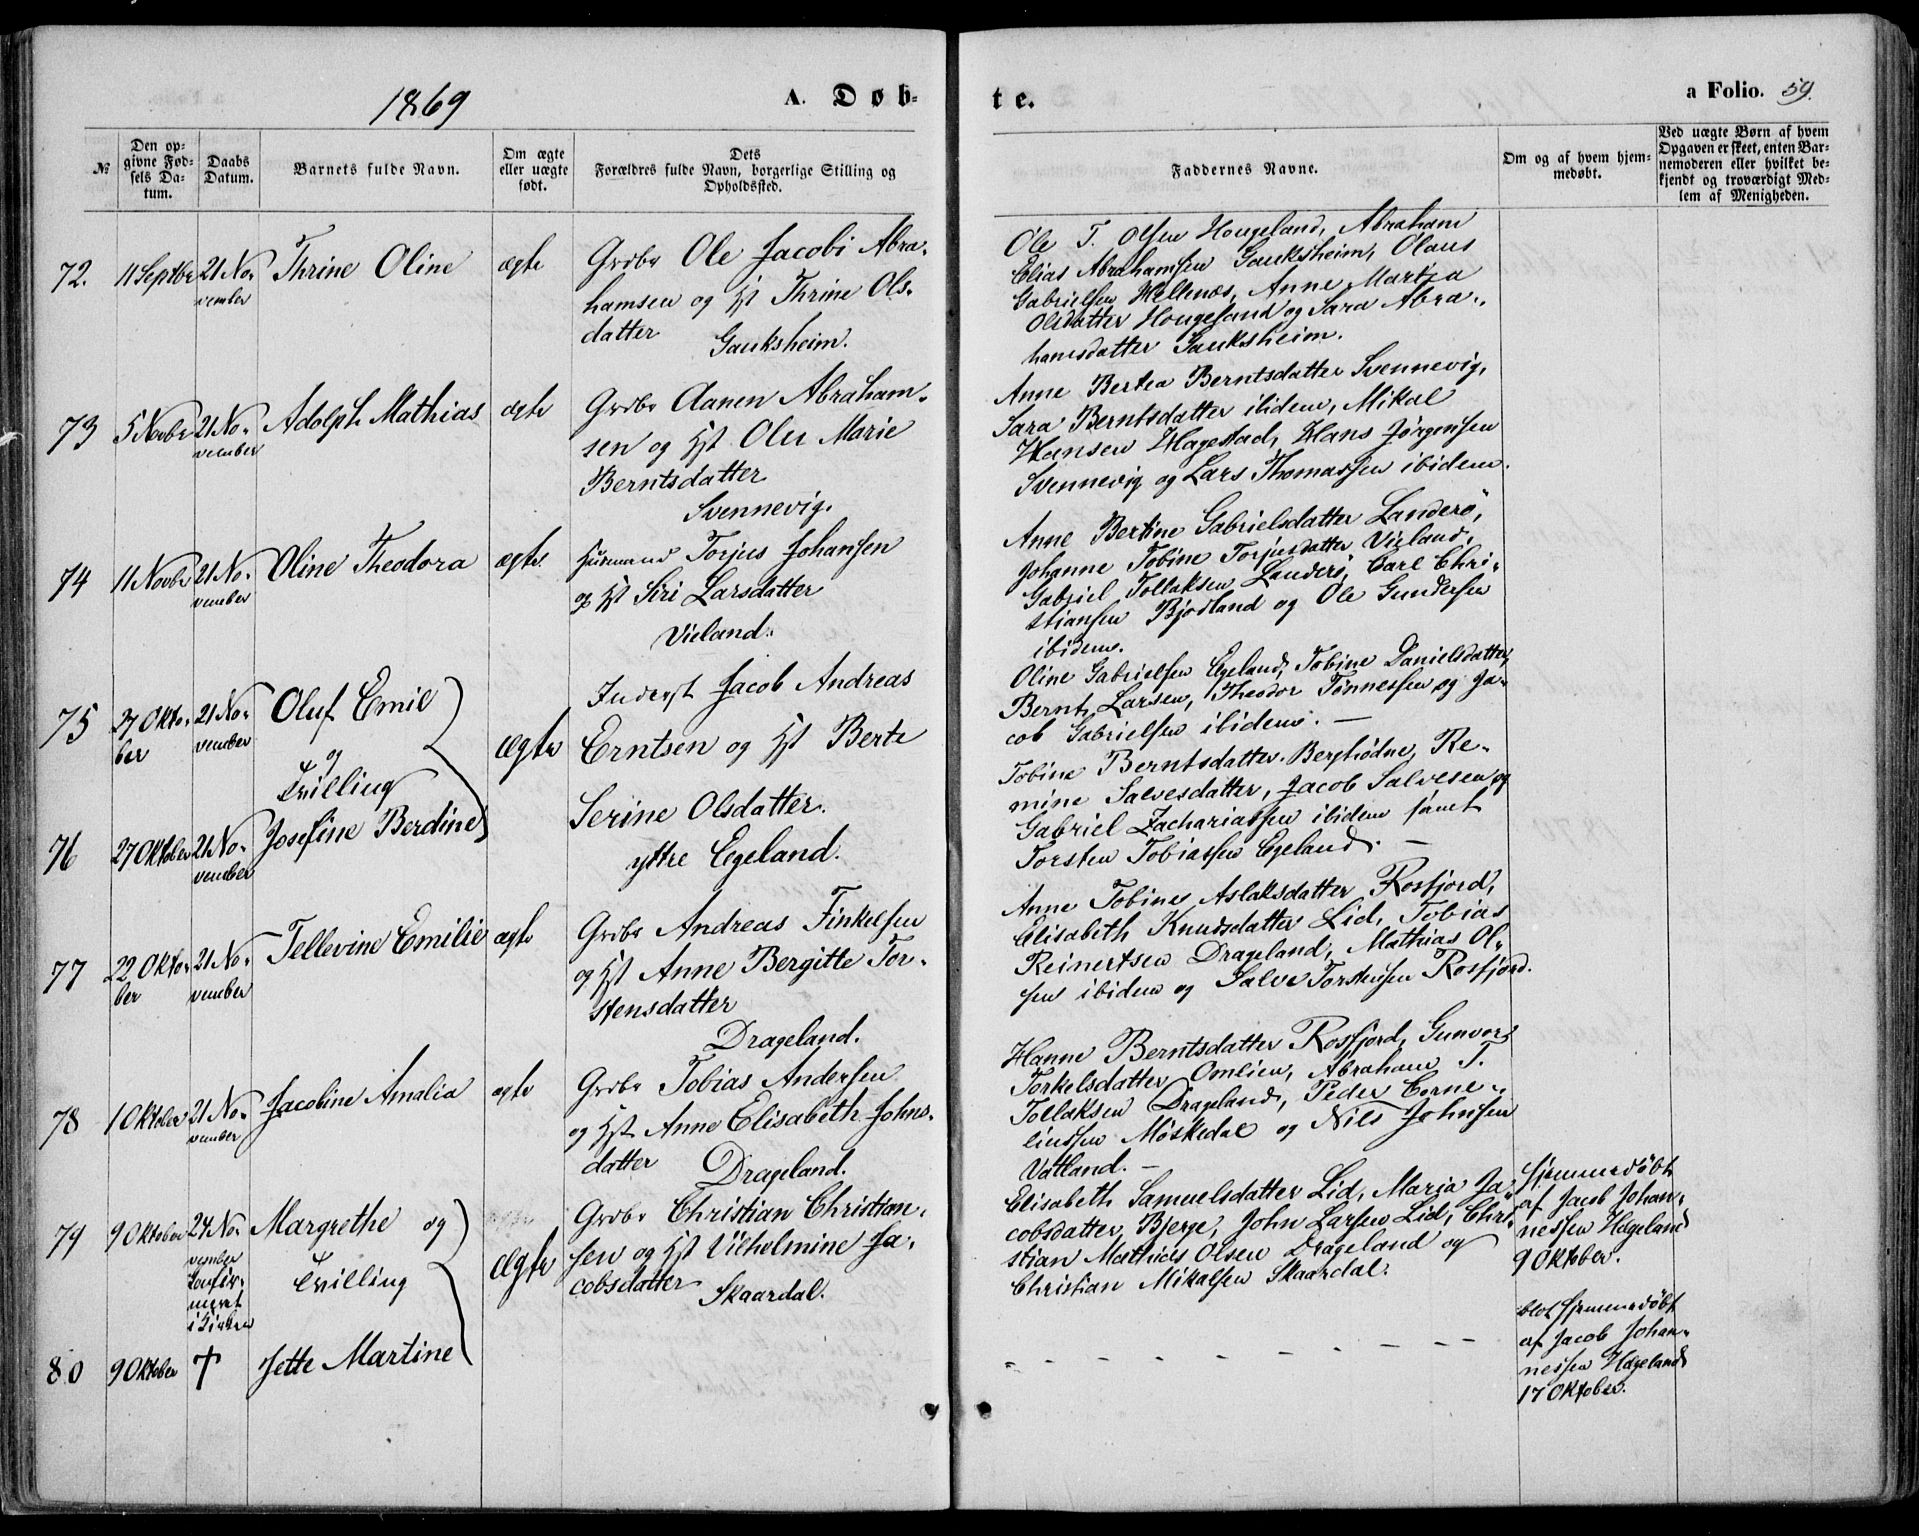 1869
A. Døb-
te.
a Folio. 59.
№
Den op-
givne Fød-
sels Da-
tum.
Daabs
Datum.
Barnets fulde Navn.
Om ægte
eller uægte
født.
Dets
Forældres fulde Navn, borgerlige Stilling og
Opholdssted.
Faddernes Navne.
Om og af hvem hjem-
medøbt.
Ved uægte Børn af hvem
Opgaven er skeet, enten Bar-
nemoderen eller hvilket be-
kjendt og troværdigt Med-
lem af Menigheden.
72.
11 Septbr
21 No-
vember
Thrine Oline
ægte
Grdbr Ole Jacobi Abra-
hamsen og Hst Thrine Ols-
datter
Gauksheim.
Ole T. Olsen Hougeland, Abraham
Elias Abrahamsen Gauksheim, Olaus
Gabrielsen Hellenæs, Anne Martea
Olsdatter Hougeland og Sara Abra-
hamsdatter Gauksheim.
73
5 Novbr
21 No-
vember
Adolph Mathias
ægte
Grdbr Aanen Abraham-
sen og Hst Olu Marie
Berntsdatter
Svennevig.
Anne Bertea Berntsdatter Svennevig,
Sara Berntsdatter ibidem, Mikal
Hansen Hagestad, Hans Jørgensen
Svennevig og Lars Thomassen ibidem.
74
11 Novbr
21 No-
vember
Oline Theodora
ægte
Husmand Torjus Johansen
og Hst Siri Larsdatter
Vieland.
Anne Bertine Gabrielsdatter Landerö,
Johanne Tobine Torjusdatter Vieland,
Gabriel Tollaksen Landerö, Carl Chri-
stiansen Bjodland og Ole Gundersen
ibidem.
75
27 Okto-
ber
21 No-
vember
Oluf Emil
og
Tvilling
ægte
Inderst Jacob Andreas
Erntsen og Hst Berte
Serine Olsdatter.
yttre Egeland.
Oline Gabrielsen Egeland, Tobine Danielsdatter,
Bernt Larsen, Theodor Tønnessen og Ja-
cob Gabrielsen ibidem. —
76
27 Oktober
21 No-
vember
Josefine Berdine
Tobine Berntsdatter Berghødne, Re-
mine Salvesdatter, Jacob Salvesen og
Gabriel Zachariassen ibidem samt
Torsten Tobiassen Egeland. —
77
22 Okto-
ber
21 No-
vember
Tellevine Emilie
ægte
Grdbr Andreas Finkelsen
og Hst Anne Bergitte Tor-
stensdatter
Drageland.
Anne Tobine Aslaksdatter Rosfjord,
Elisabeth Knudsdatter Lid, Tobias
Reinertsen Drageland, Mathias Ol-
sen ibidem og Salve Torstensen Rosfjord.
78
1 Oktober
21 No-
vember
Jacobine Amalia
ægte
Grdbr Tobias Andersen
og Hst Anne Elisabeth Johns-
datter Drageland.
Hanne Berntsdatter Rosfjord, Gunvor
Torkelsdatter Omlien, Abraham T.
Tollaksen Drageland, Peder Corne-
liussen Møskedal og Nils Johnsen
Vatland. —
79
9 Oktober
24 No-
vember
Confir-
meret
i Kirken
Margrethe og
Tvilling
ægte
Grdbr Christian Christian-
sen og Hst Vilhelmine Ja-
cobsdatter Skaardal.
Elisabeth Samuelsdatter Lid, Maria Ja-
cobsdatter Bjerge, John Larsen Lid, Chri-
stian Mathias Olsen Drageland og
Christian Mikalsen Skaardal.
Hjemmedöbt
af Jacob Johan-
nessen Hægeland
9 Oktober.
80
9 Oktober
†
Jette Martine
blot Hjemmedöbt
af Jacob Johan-
nessen Hægeland
17 Oktober.